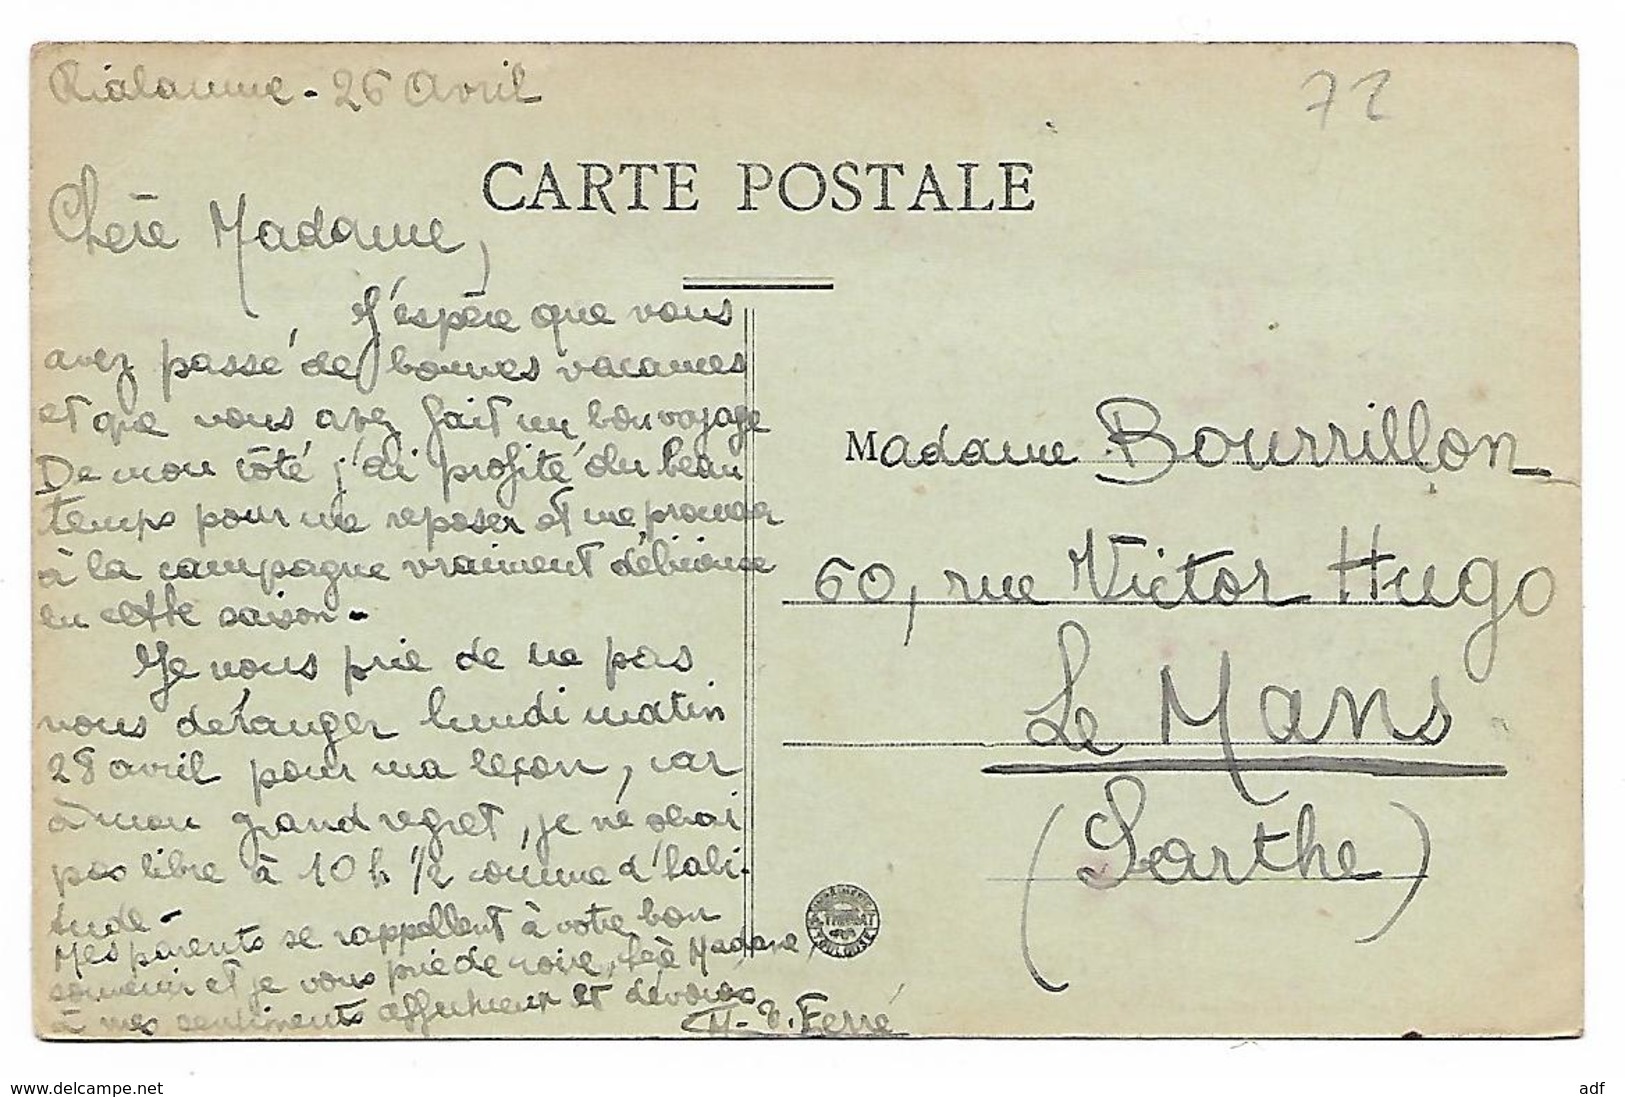 26 Avril
72
CARTE POSTALE
Chère Madame,
J'espère que vous
avez passé de bonnes vacances
et que vous avez fait un bon voyage
De mon côté j'ai profité du beau
temps pour me reposer et me promener
à la campagne vraiment délicieuse
en cette saison -
Je vous prie de ne pas
vous déranger lundi matin
28 avril pour ma leçon, car
à mon grand regret, je ne serai
pas libre à 10 h 1/2 comme d'habi-
tude -
Mes parents se rappellent à votre bon
souvenir et je vous prie de croire, chère Madame,
à mes sentiments affectueux et dévoués
Ferré
Madame Bourrillon
60, rue Victor Hugo
Le Mans
(Sarthe)
TOULOUSE
www.delcampe.net
adf